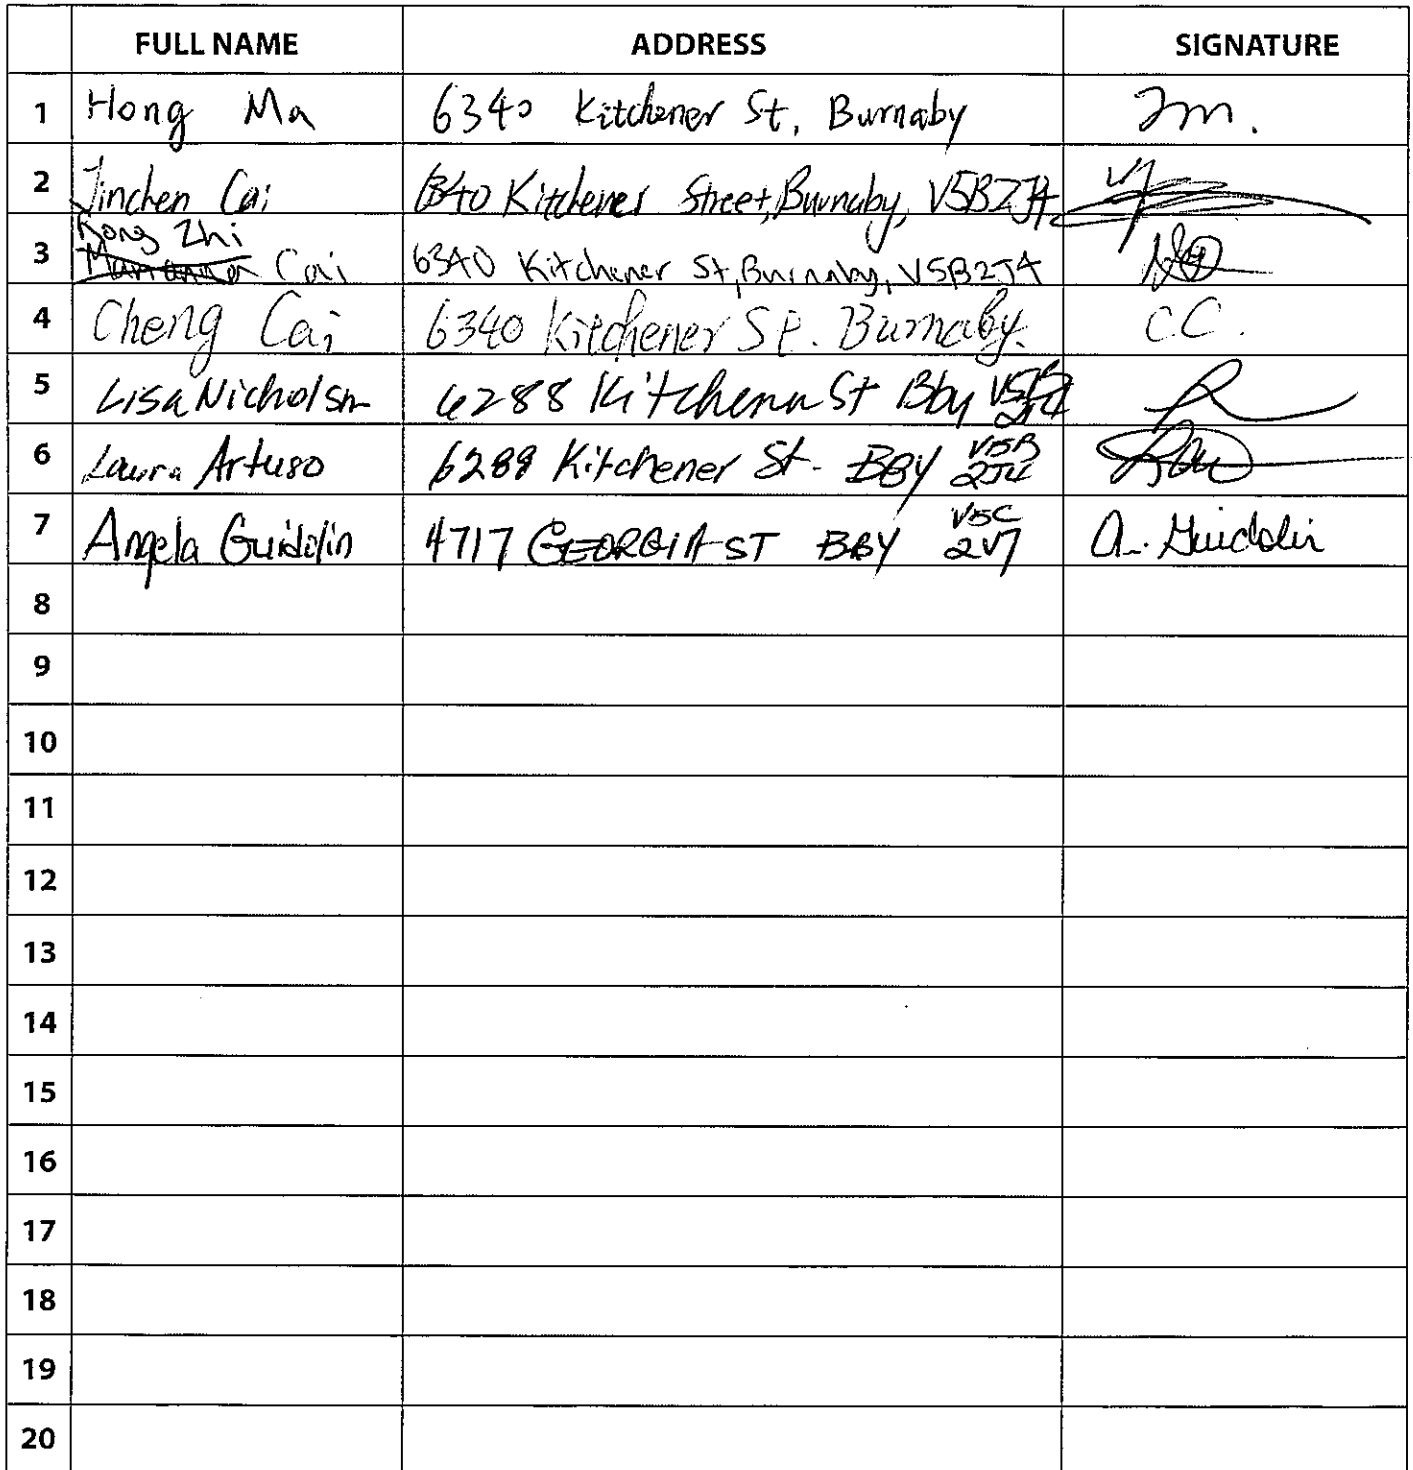 FULL NAME ADDRESS SIGNATURE
1 Hong Ma 6340 Kitchener St, Burnaby
2 Jinchen Cai 6340 Kitchener Street, Burnaby, V5B2J4
Rong Zhi
3 Cai 6340 Kitchener St, Burnaby, V5B2J4
4 Cheng Cai 6340 Kitchener St. Burnaby. C.C.
5 Lisa Nicholson 6288 Kitchener St Bby V5B
2J4
6 Laura Artuso 6288 Kitchener St. BBY V5B
2J4
7 Angela Guidolin 4717 GEORGIA ST BBY V5C
2V7 A. Guidolin
8
9
10
11
12
13
14
15
16
17
18
19
20